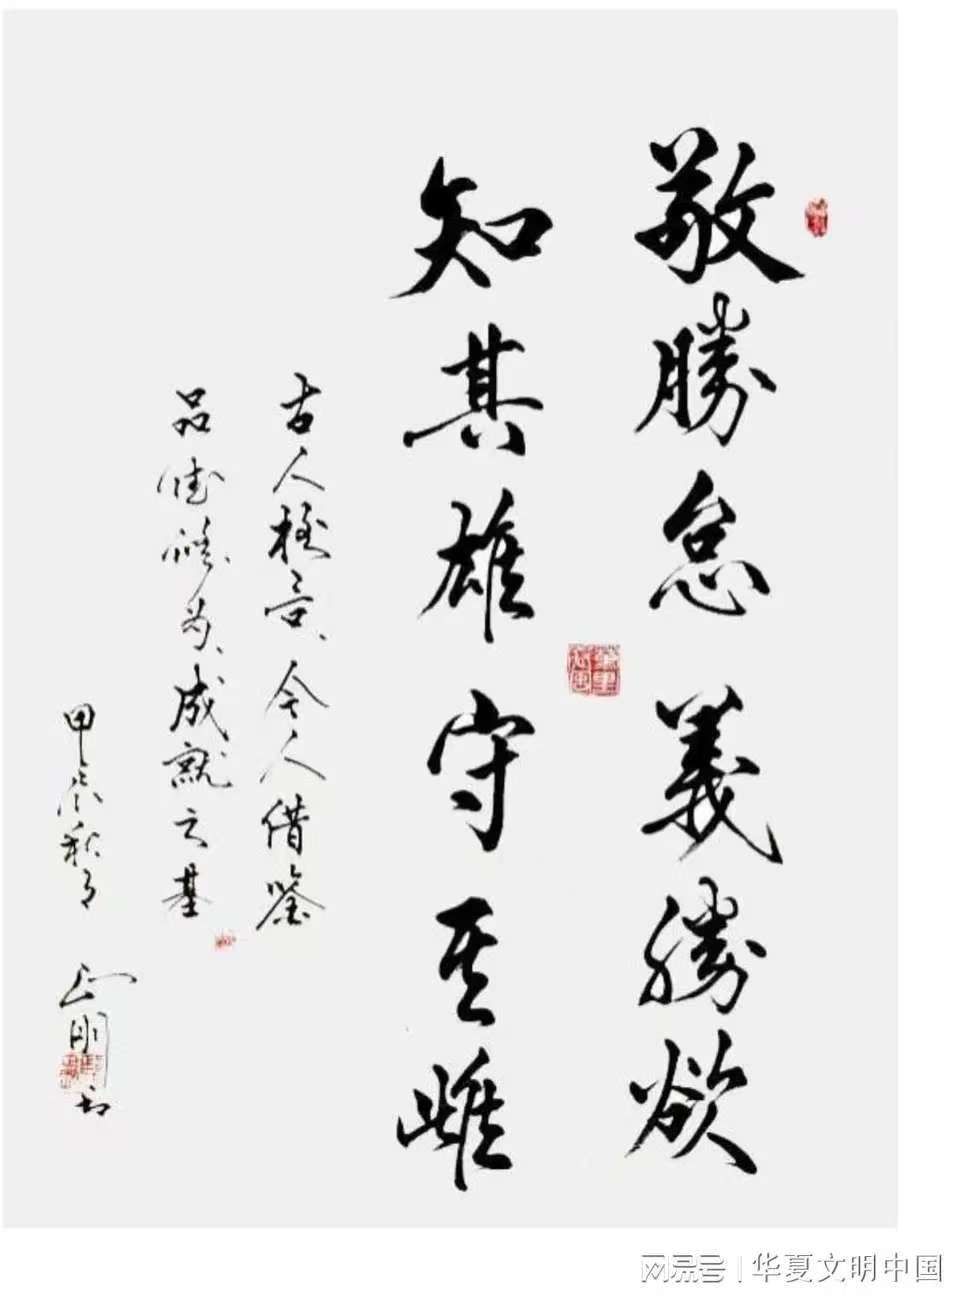 敬勝怠義勝欲
知其雄守其雌
古人格言、今人借鉴
品德修为、成就之基
甲辰秋月 正刚书
网易号 | 华夏文明中国